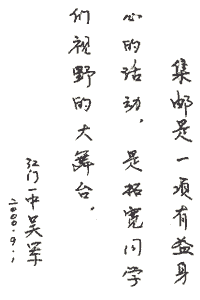 集邮是一项有益身
心的活动，是拓宽同学
们视野的大舞台。
江门一中吴军
二000.9.1